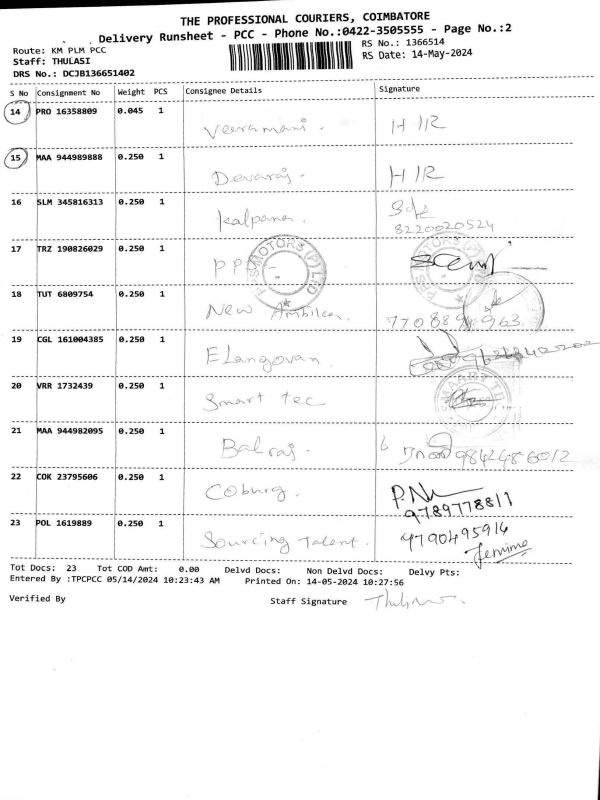 THE PROFESSIONAL COURIERS, COIMBATORE
Delivery Runsheet - PCC - Phone No.:0422-3505555 - Page No.:2
Route: KM PLM PCC
RS No.: 1366514
Staff: THULASI
RS Date: 14-May-2024
DRS No.: DCJB136651402
S No Consignment No Weight PCS Consignee Details Signature
14 PRO 16358809 0.045 1
Veeramani. H/R
15 MAA 944989888 0.250 1
Devaraj. H/R
16 SLM 345816313 0.250 1
Kalpana.
8220020524
17 TRZ 190826029 0.250 1
PPS MOTORS (P) LTD PPS MOTORS (P) LTD
18 TUT 6809754 0.250 1
New
19 CGL 161004385 0.250 1
Elangovan.
20 VRR 1732439 0.250 1
Smart tec
21 MAA 944982095 0.250 1
Balraj. 9842486012
22 COK 23795606 0.250 1
Coburg. 9789778811
23 POL 1619889 0.250 1
Sourcing Talent. 9790495916
Jemima
Tot Docs: 23 Tot COD Amt: 0.00 Delvd Docs: Non Delvd Docs: Delvy Pts:
Entered By :TPCPCC 05/14/2024 10:23:43 AM Printed On: 14-05-2024 10:27:56
Verified By Staff Signature